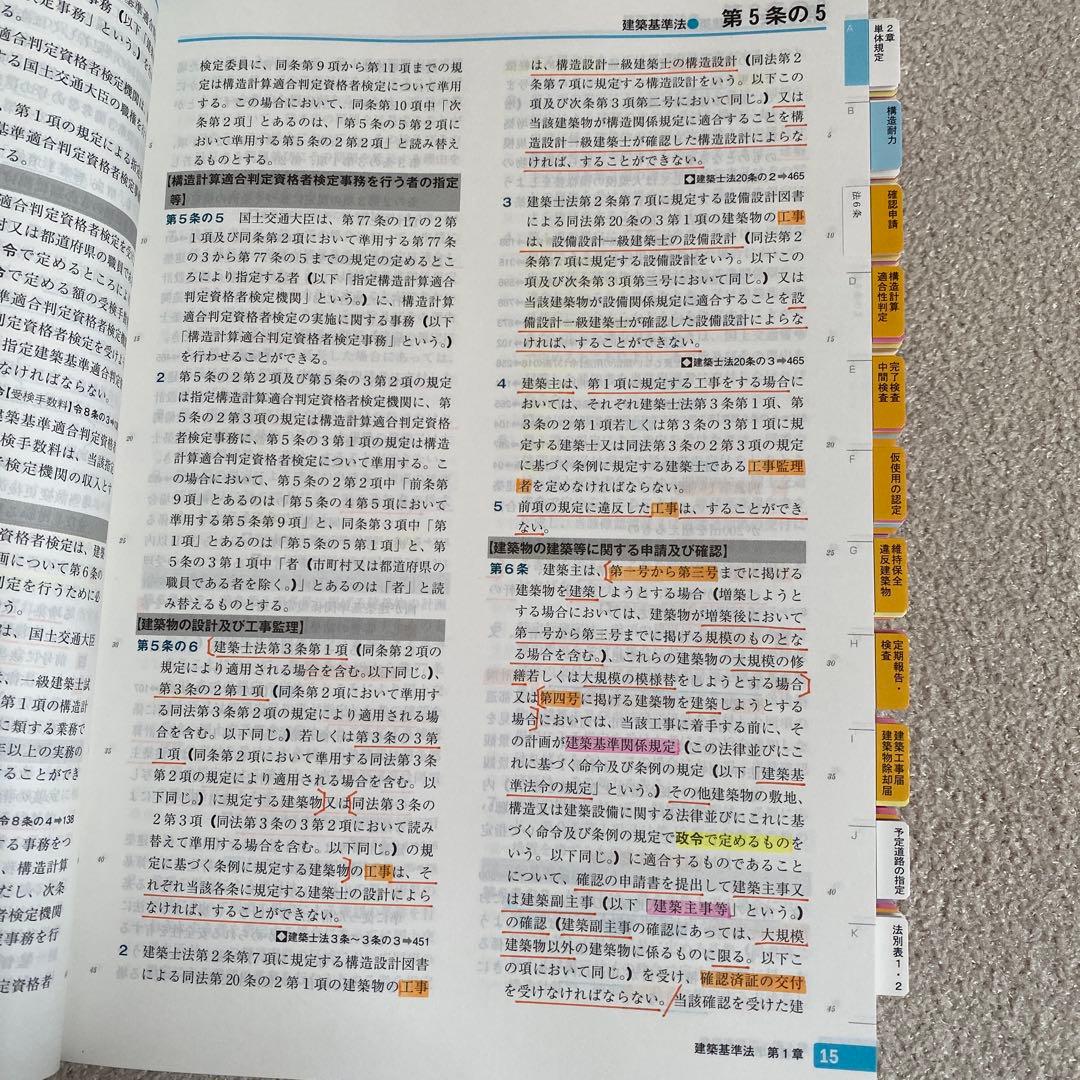 建築基準法● 第5条の5
検定委員に、同条第9項から第11項までの規
定は構造計算適合判定資格者検定について準用
する。この場合において、同条第10項中「次
条第2項」とあるのは、「第5条の5第2項に
おいて準用する第5条の2第2項」と読み替え
るものとする。
【構造計算適合判定資格者検定事務を行う者の指定
等】
第5条の5 国土交通大臣は、第77条の17の2第
1項及び同条第2項において準用する第77条
の3から第77条の5までの規定の定めるとこ
ろにより指定する者(以下「指定構造計算適合
判定資格者検定機関」という。)に、構造計算
適合判定資格者検定の実施に関する事務(以下
「構造計算適合判定資格者検定事務」という。)
を行わせることができる。
2 第5条の2第2項及び第5条の3第2項の規定
は指定構造計算適合判定資格者検定機関に、第
5条の2第3項の規定は構造計算適合判定資格
者検定事務に、第5条の3第1項の規定は構造
計算適合判定資格者検定について準用する。こ
の場合において、第5条の2第2項中「前条第
9項」とあるのは「第5条の4第5項において
準用する第5条第9項」と、同条第3項中「第
1項」とあるのは「第5条の5第1項」と、第
5条の3第1項中「者(市町村又は都道府県の
職員である者を除く。)」とあるのは「者」と読
み替えるものとする。
【建築物の設計及び工事監理】
第5条の6 建築士法第3条第1項(同条第2項の
規定により適用される場合を含む。以下同じ。)、
第3条の2第1項(同条第2項において準用す
る同法第3条第2項の規定により適用される場
合を含む。以下同じ。)若しくは第3条の3第
1項(同条第2項において準用する同法第3条
第2項の規定により適用される場合を含む。以
下同じ。)に規定する建築物又は同法第3条の
2第3項(同法第3条の3第2項において読み
替えて準用する場合を含む。以下同じ。)の規
定に基づく条例に規定する建築物の工事は、そ
れぞれ当該各条に規定する建築士の設計によら
なければ、することができない。
◆建築士法3条～3条の3➡451
2 建築士法第2条第7項に規定する構造設計図書
による同法第20条の2第1項の建築物の工事
は、構造設計一級建築士の構造設計(同法第2
条第7項に規定する構造設計をいう。以下この
項及び次条第3項第二号において同じ。)又は
当該建築物が構造関係規定に適合することを構
造設計一級建築士が確認した構造設計によらな
ければ、することができない。
◆建築士法20条の2➡465
3 建築士法第2条第7項に規定する設備設計図書
による同法第20条の3第1項の建築物の工事
は、設備設計一級建築士の設備設計(同法第2
条第7項に規定する設備設計をいう。以下この
項及び次条第3項第三号において同じ。)又は
当該建築物が設備関係規定に適合することを設
備設計一級建築士が確認した設備設計によらな
ければ、することができない。
◆建築士法20条の3➡465
4 建築主は、第1項に規定する工事をする場合に
おいては、それぞれ建築士法第3条第1項、第
3条の2第1項若しくは第3条の3第1項に規
定する建築士又は同法第3条の2第3項の規定
に基づく条例に規定する建築士である工事監理
者を定めなければならない。
5 前項の規定に違反した工事は、することができ
ない。
【建築物の建築等に関する申請及び確認】
第6条 建築主は、第一号から第三号までに掲げる
建築物を建築しようとする場合(増築しようと
する場合においては、建築物が増築後において
第一号から第三号までに掲げる規模のものとな
る場合を含む。)、これらの建築物の大規模の修
繕若しくは大規模の模様替をしようとする場合
又は第四号に掲げる建築物を建築しようとする
場合においては、当該工事に着手する前に、そ
の計画が建築基準関係規定(この法律並びにこ
れに基づく命令及び条例の規定(以下「建築基
準法令の規定」という。)その他建築物の敷地、
構造又は建築設備に関する法律並びにこれに基
づく命令及び条例の規定で政令で定めるものを
いう。以下同じ。)に適合するものであること
について、確認の申請書を提出して建築主事又
は建築副主事(以下「建築主事等」という。)
の確認(建築副主事の確認にあっては、大規模
建築物以外の建築物に係るものに限る。以下こ
の項において同じ。)を受け、確認済証の交付
を受けなければならない。当該確認を受けた建
建築基準法 第1章 15
A
2章
単体規定
B
構造耐力
法6条
確認申請
D
構造計算
適合性判定
E
完了検査
中間検査
F
仮使用の認定
G
維持保全
違反建築物
H
定期報告・
検査
I
建築工事届
建築物除却届
J
予定道路の指定
K
法別表1・2